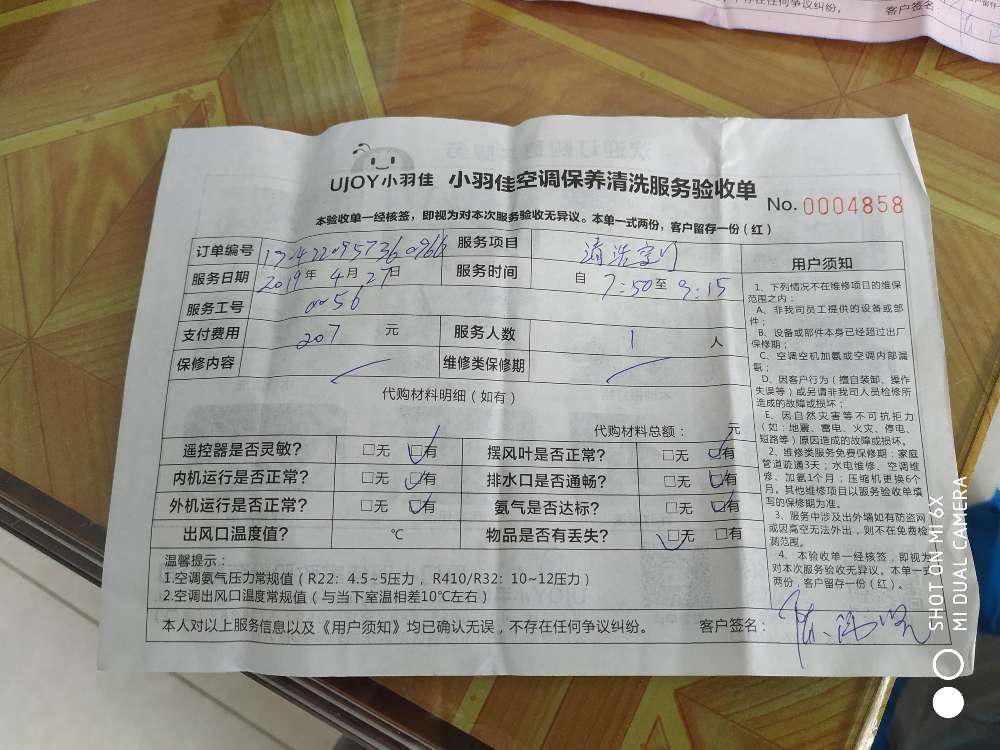 存在任何争议纠纷。 客户签名
UJOY小羽佳 小羽佳空调保养清洗服务验收单
No. 0004858
本验收单一经核签，即视为对本次服务验收无异议。本单一式两份，客户留存一份（红）
订单编号 服务项目 清洗
服务日期 2019年4月27日 服务时间 自 7:50 至 9:15
服务工号 0056
支付费用 207 元 服务人数 1 人
保修内容 维修类保修期
代购材料明细（如有）
代购材料总额： 元
遥控器是否灵敏？ □无 □有 摆风叶是否正常？ □无 □有
内机运行是否正常？ □无 □有 排水口是否通畅？ □无 □有
外机运行是否正常？ □无 □有 氨气是否达标？ □无 □有
出风口温度值？ ℃ 物品是否有丢失？ □无 □有
温馨提示：
1.空调氨气压力常规值（R22：4.5~5压力，R410/R32：10~12压力）
2.空调出风口温度常规值（与当下室温相差10℃左右）
本人对以上服务信息以及《用户须知》均已确认无误，不存在任何争议纠纷。 客户签名：
用户须知
1、下列情况不在维修项目的维保
范围之内：
A、非我司员工提供的设备或部
件；
B、设备或部件本身已经超过出厂
保修期；
C、空调空机加氨或空调内部漏
氨；
D、因客户行为（擅自装卸、操作
失误等）或另请非我司人员检修所
造成的故障或损坏；
E、因自然灾害等不可抗拒力
（如：地震、雷电、火灾、停电、
短路等）原因造成的故障或损坏。
2、维修类服务免费保修期：家庭
管道疏通3天；水电维修、空调维
修、加氨1个月；压缩机更换6个
月。其他维修项目以服务验收单填
写的保修期为准。
3、服务中涉及出外墙如有防盗网
或因高空无法外出，则不在免费检
测范围。
4、本验收单一经核签，即视为
对本次服务验收无异议。本单一式
两份，客户留存一份（红）。
SHOT ON MI 6X
MI DUAL CAMERA